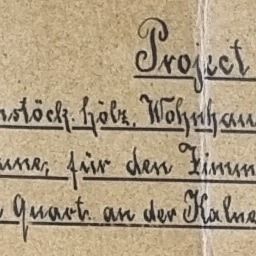 Project
nstöck. hölz. Wohnhau
une, für den Zimm
Quart. an der Kalne